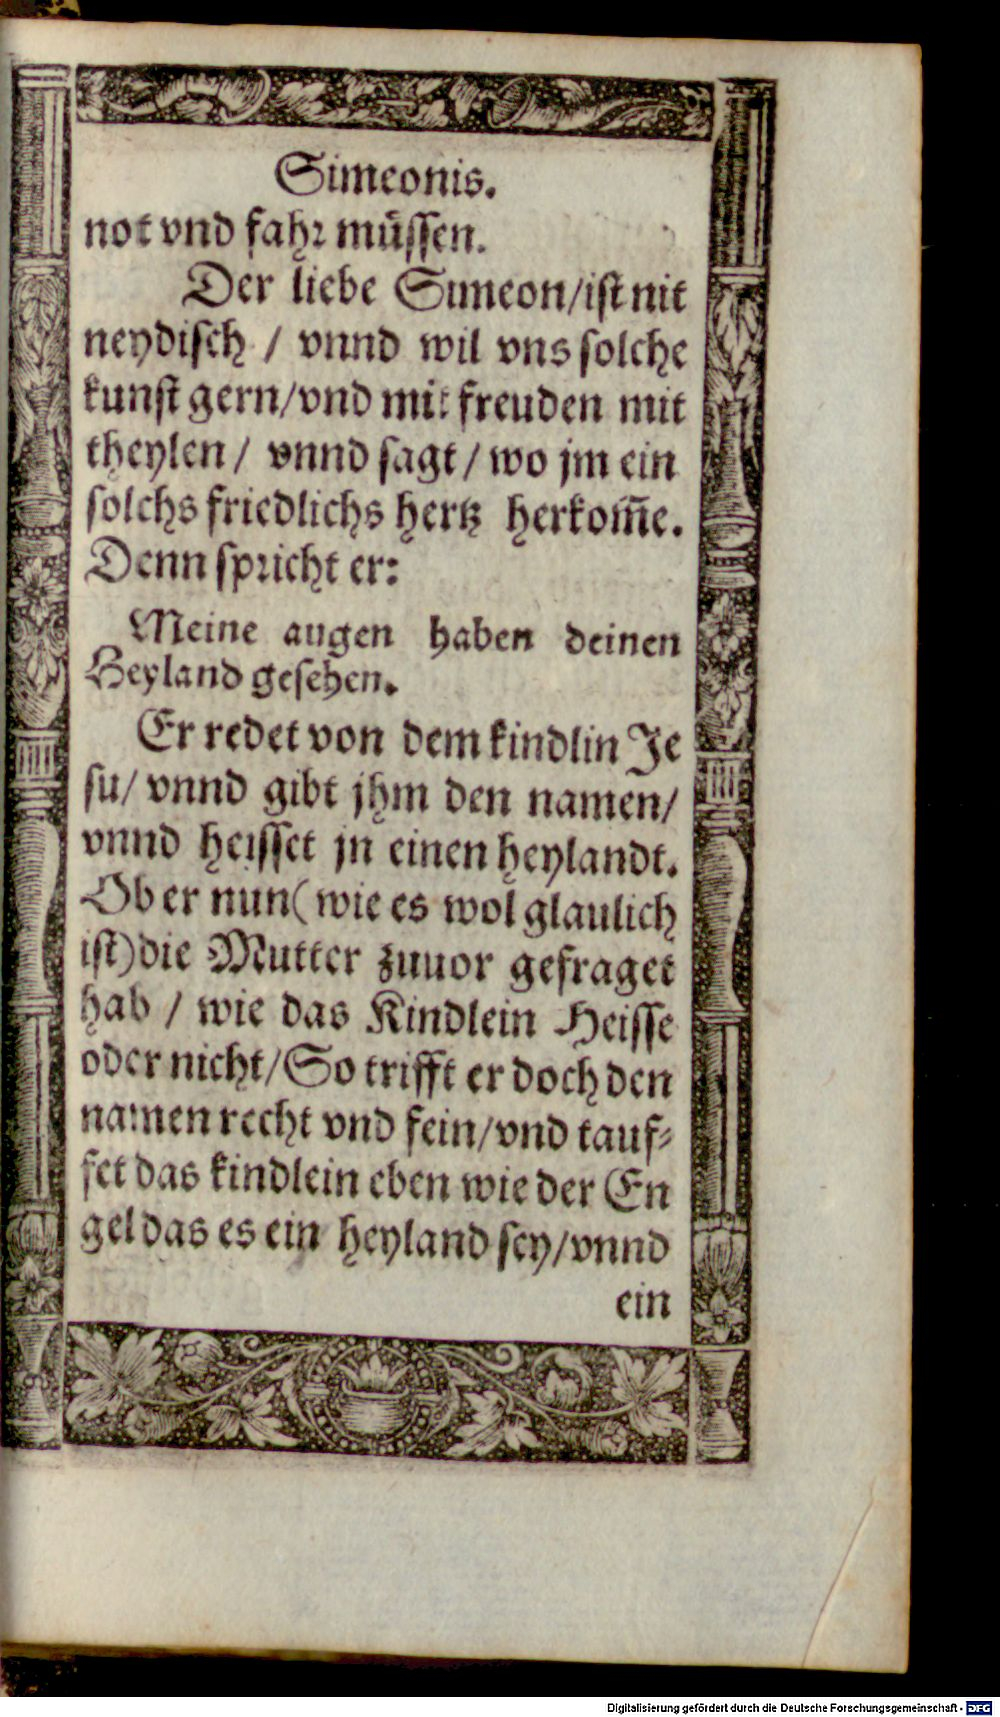 Simeonis.
not vnd fahr müssen.
Der liebe Simeon/ist nit
neydisch / vnnd wil vns solche
kunst gern/vnd mit freuden mit
theylen / vnnd sagt / wo jm ein
solchs friedlichs hertz herkom̄e.
Denn spricht er:
Meine augen haben deinen
Heyland gesehen.
Er redet von dem kindlin Je
su/ vnnd gibt jhm den namen/
vnnd heisset jn einen heylandt.
Ob er nun (wie es wol glaulich
ist) die Mutter zuuor gefraget
hab / wie das Kindlein Heisse
oder nicht/So trifft er doch den
namen recht vnd fein/vnd tauf⸗
fet das kindlein eben wie der En
gel das es ein heyland sey/vnnd
ein
Digitalisierung gefördert durch die Deutsche Forschungsgemeinschaft - DFG